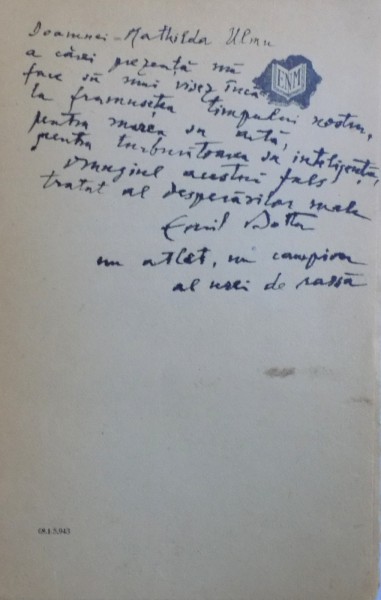 Doamnei Mathilda Ulmu
a cărei prezență mă
face să mai visez încă
la frumusețea timpului nostru,
pentru marea sa artă,
pentru turburătoarea sa inteligență,
omagiul acestui fals
tratat al desperărilor mele
Emil Botta
un atlet, un campion
al urei de rassă
ENM